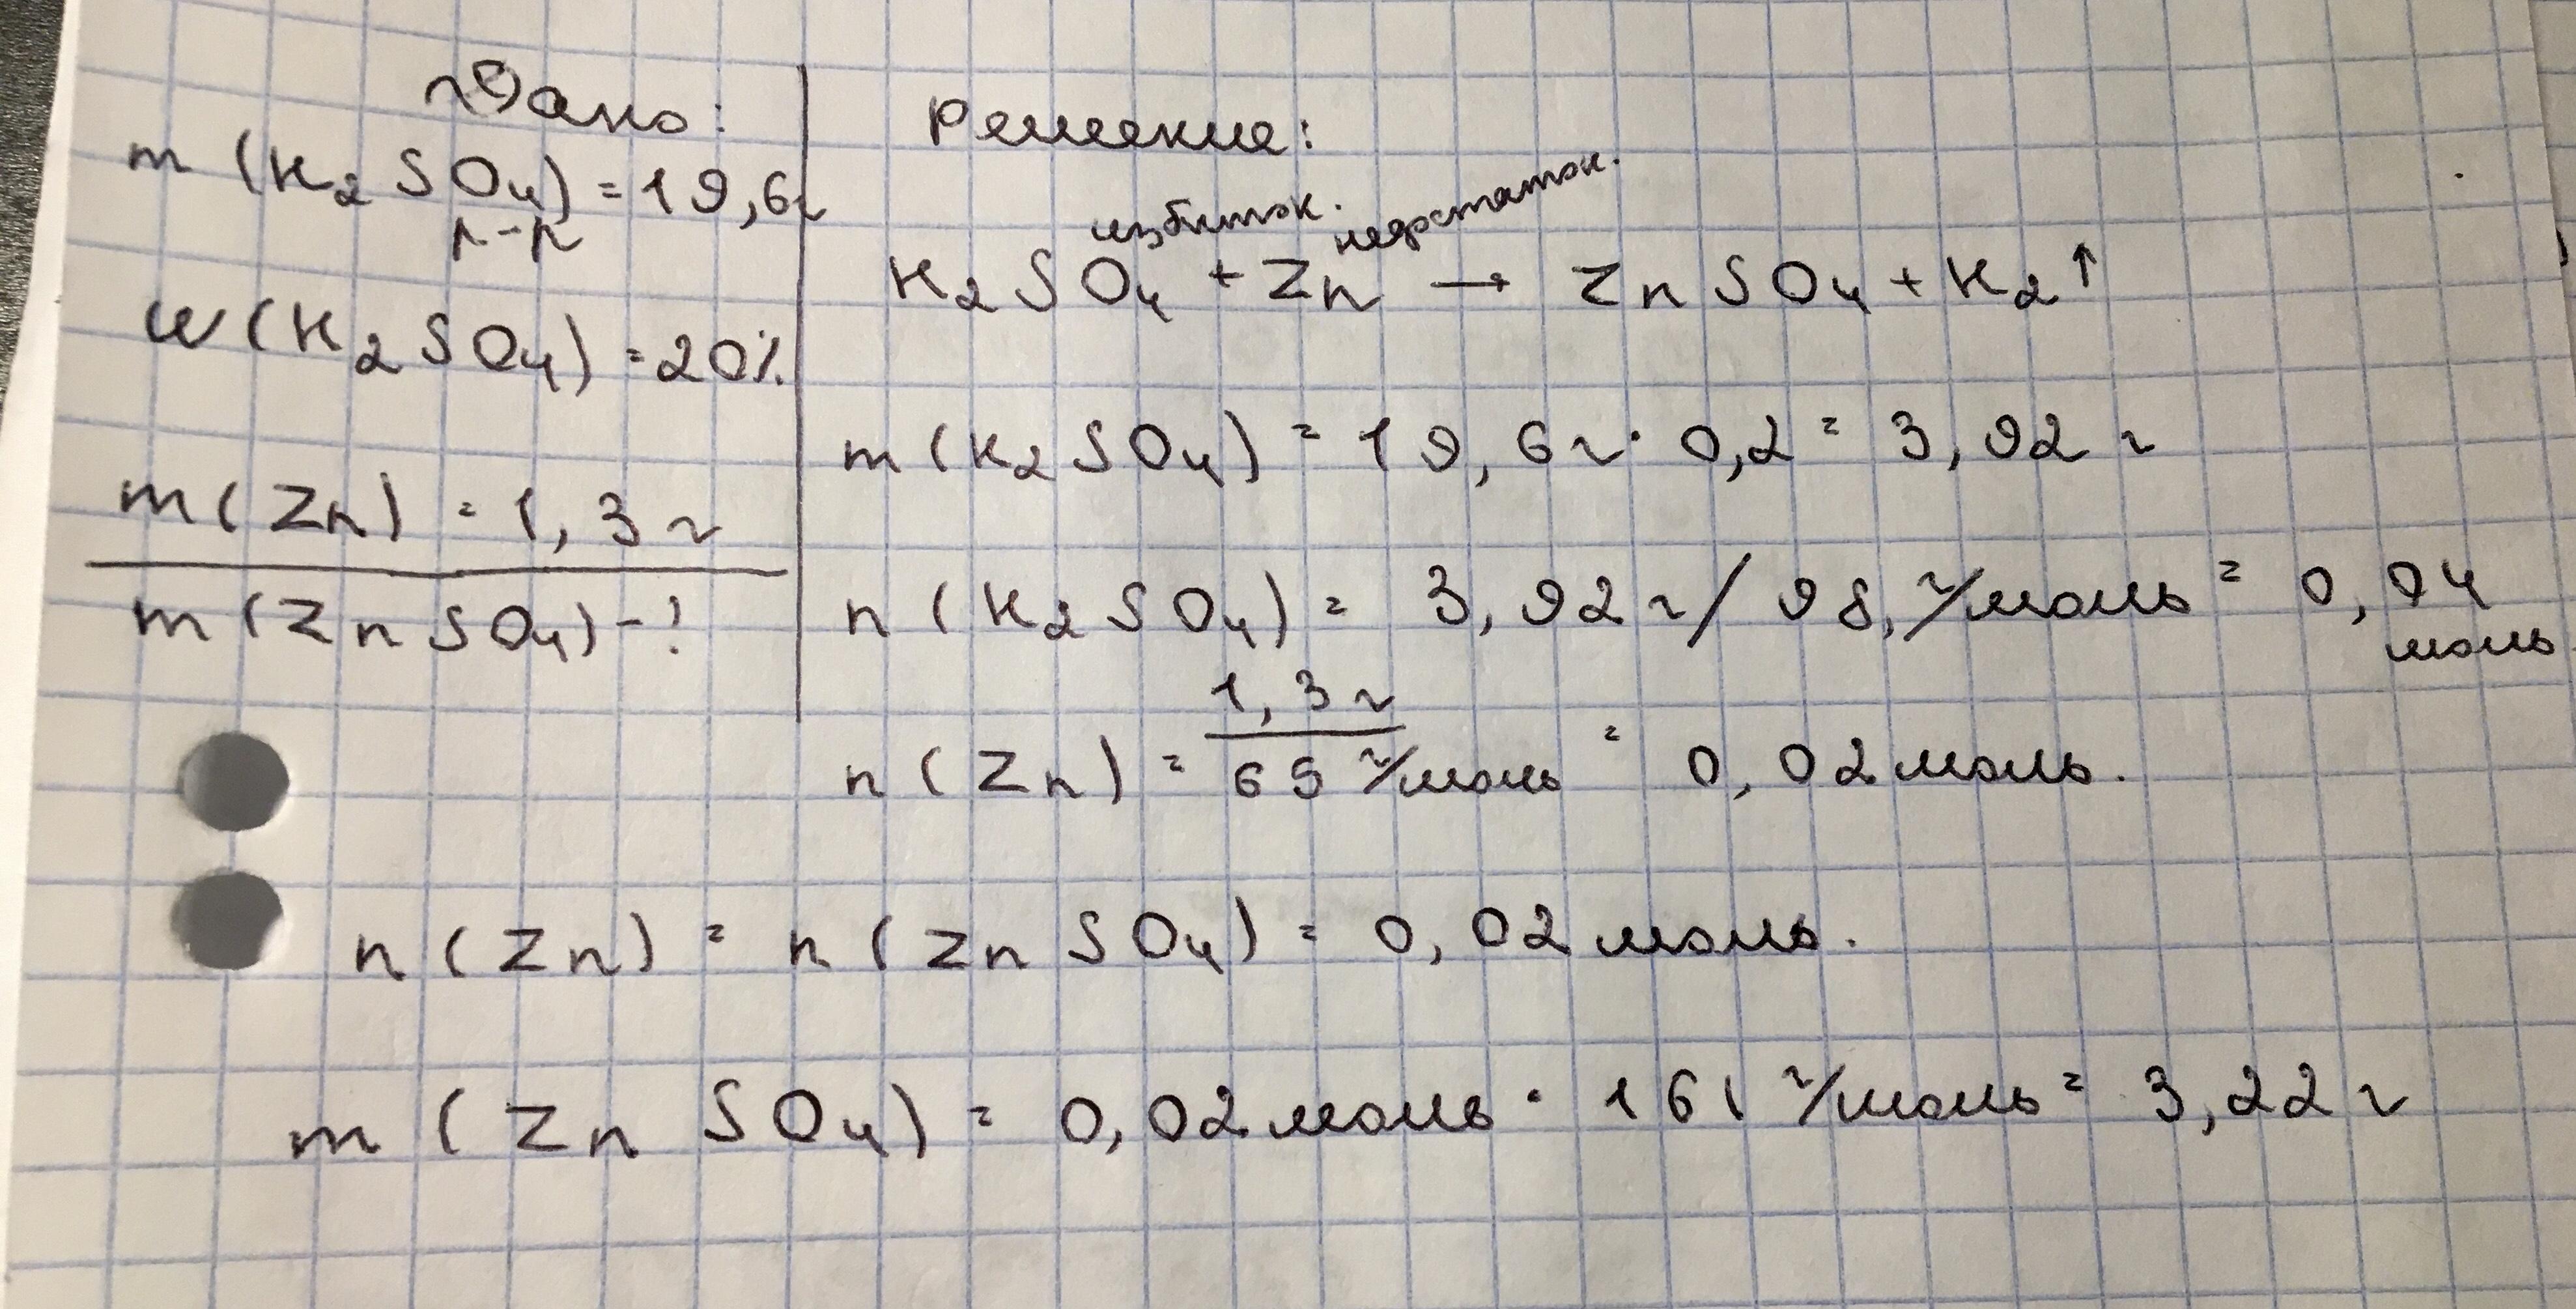 Дано:
m (H₂SO₄) = 19,6г
р-р
w (H₂SO₄) = 20%
m (Zn) = 1,3 г
m (ZnSO₄) - ?
Решение:
избыток. недостаток.
H₂SO₄ + Zn → ZnSO₄ + H₂↑
m (H₂SO₄) = 19,6г · 0,2 = 3,92 г
n (H₂SO₄) = 3,92 г / 98, г/моль = 0,04 моль
n (Zn) = 1,3 г / 65 г/моль = 0,02 моль.
n (Zn) = n (ZnSO₄) = 0,02 моль.
m (ZnSO₄) = 0,02 моль · 161 г/моль = 3,22 г